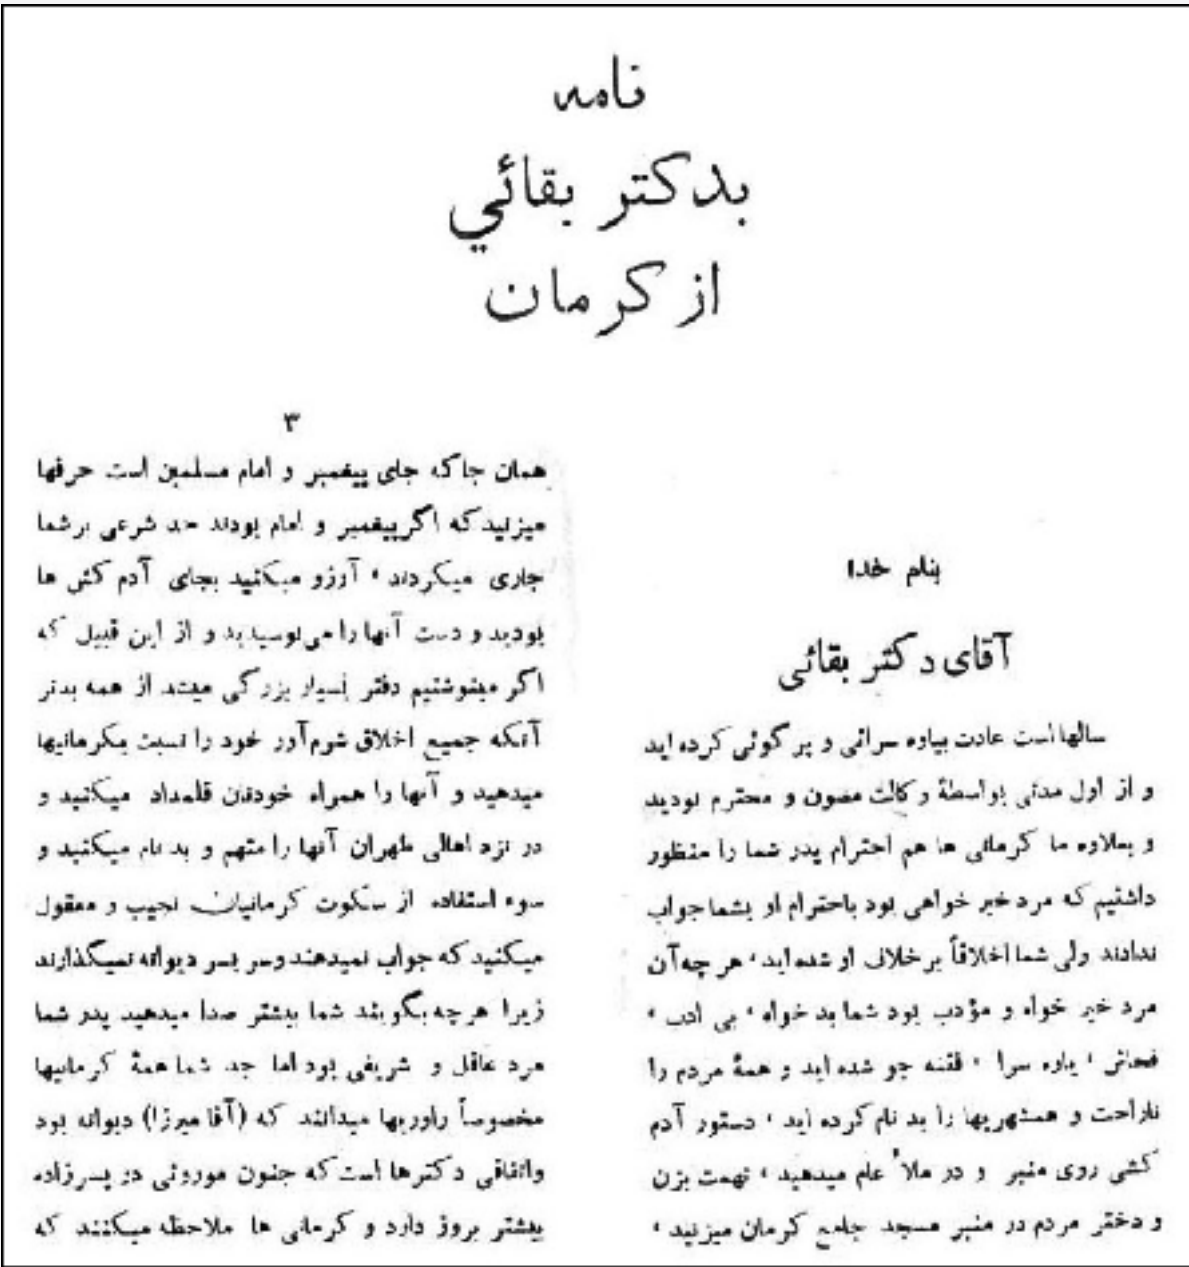 نامه
بدکتر بقائي
از کرمان
بنام خدا
آقای دکتر بقائی
سالها است عادت بیاوه سرائی و پر گوئی کرده اید
و از اول مدتی بواسطهٔ وکالت مصون و محترم بودید
و بعلاوه ما کرمانی ها هم احترام پدر شما را منظور
داشتیم که مرد خیر خواهی بود باحترام او بشما جواب
ندادند ولی شما اخلاقاً برخلاف او شده اید، هر چه آن
مرد خیر خواه و مؤدب بود شما بد خواه، بی ادب،
فحاش، یاوه سرا، فتنه جو شده اید و همهٔ مردم را
ناراحت و همشهریها را بد نام کرده اید، دستور آدم
کشی روی منبر و در ملاٴ عام میدهید، تهمت بزن
و دختر مردم در منبر مسجد جامع کرمان میزنید،
۳
همان جا که جای پیغمبر و امام مسلمین است حرفها
میزنید که اگر پیغمبر و امام بودند حد شرعی بر شما
جاری میکردند، آرزو میکنید بجای آدم کش ها
بودید و دست آنها را می‌بوسیدید و از این قبیل که
اگر مینوشتیم دفتر بسیار بزرگی میشد از همه بدتر
آنکه جمیع اخلاق شرم‌آور خود را نسبت بکرمانیها
میدهید و آنها را همراه خودتان قلمداد میکنید و
در نزد اهالی طهران آنها را متهم و بد نام میکنید و
سوء استفاده از سکوت کرمانیان نجیب و معقول
میکنید که جواب نمیدهند و سر بسر دیوانه نمیگذارند
زیرا هر چه بگویند شما بیشتر صدا میدهید پدر شما
مرد عاقل و شریفی بود اما جد شما همهٔ کرمانیها
مخصوصاً راوریها میدانند که (آقا میرزا) دیوانه بود
واتفاقی دکترها است که جنون موروثی در پسرزاده
بیشتر بروز دارد و کرمانی ها ملاحظه میکنند که